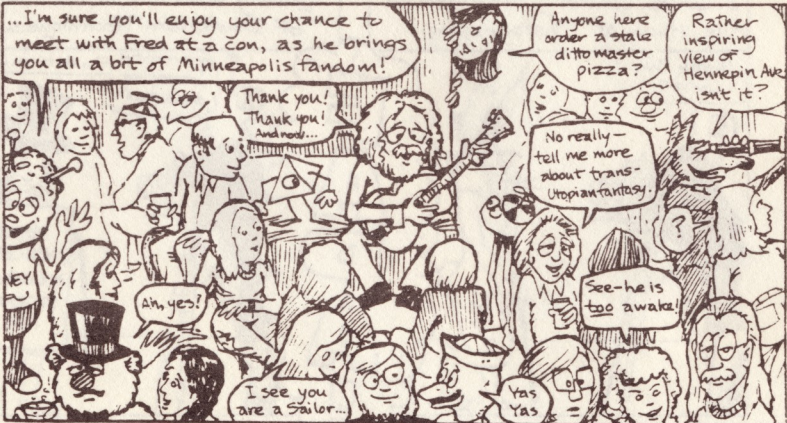 ...I'm sure you'll enjoy your chance to
meet with Fred at a con, as he brings
you all a bit of Minneapolis fandom!
Thank you!
Thank you!
And now...
Anyone here
order a stale
ditto master
pizza?
Rather
inspiring
view of
Hennepin Ave
isn't it?
No really—
tell me more
about trans-
Utopian fantasy.
?
NEY
Ah, yes?
See—he is
too awake!
I see you
are a Sailor...
Yas
Yas